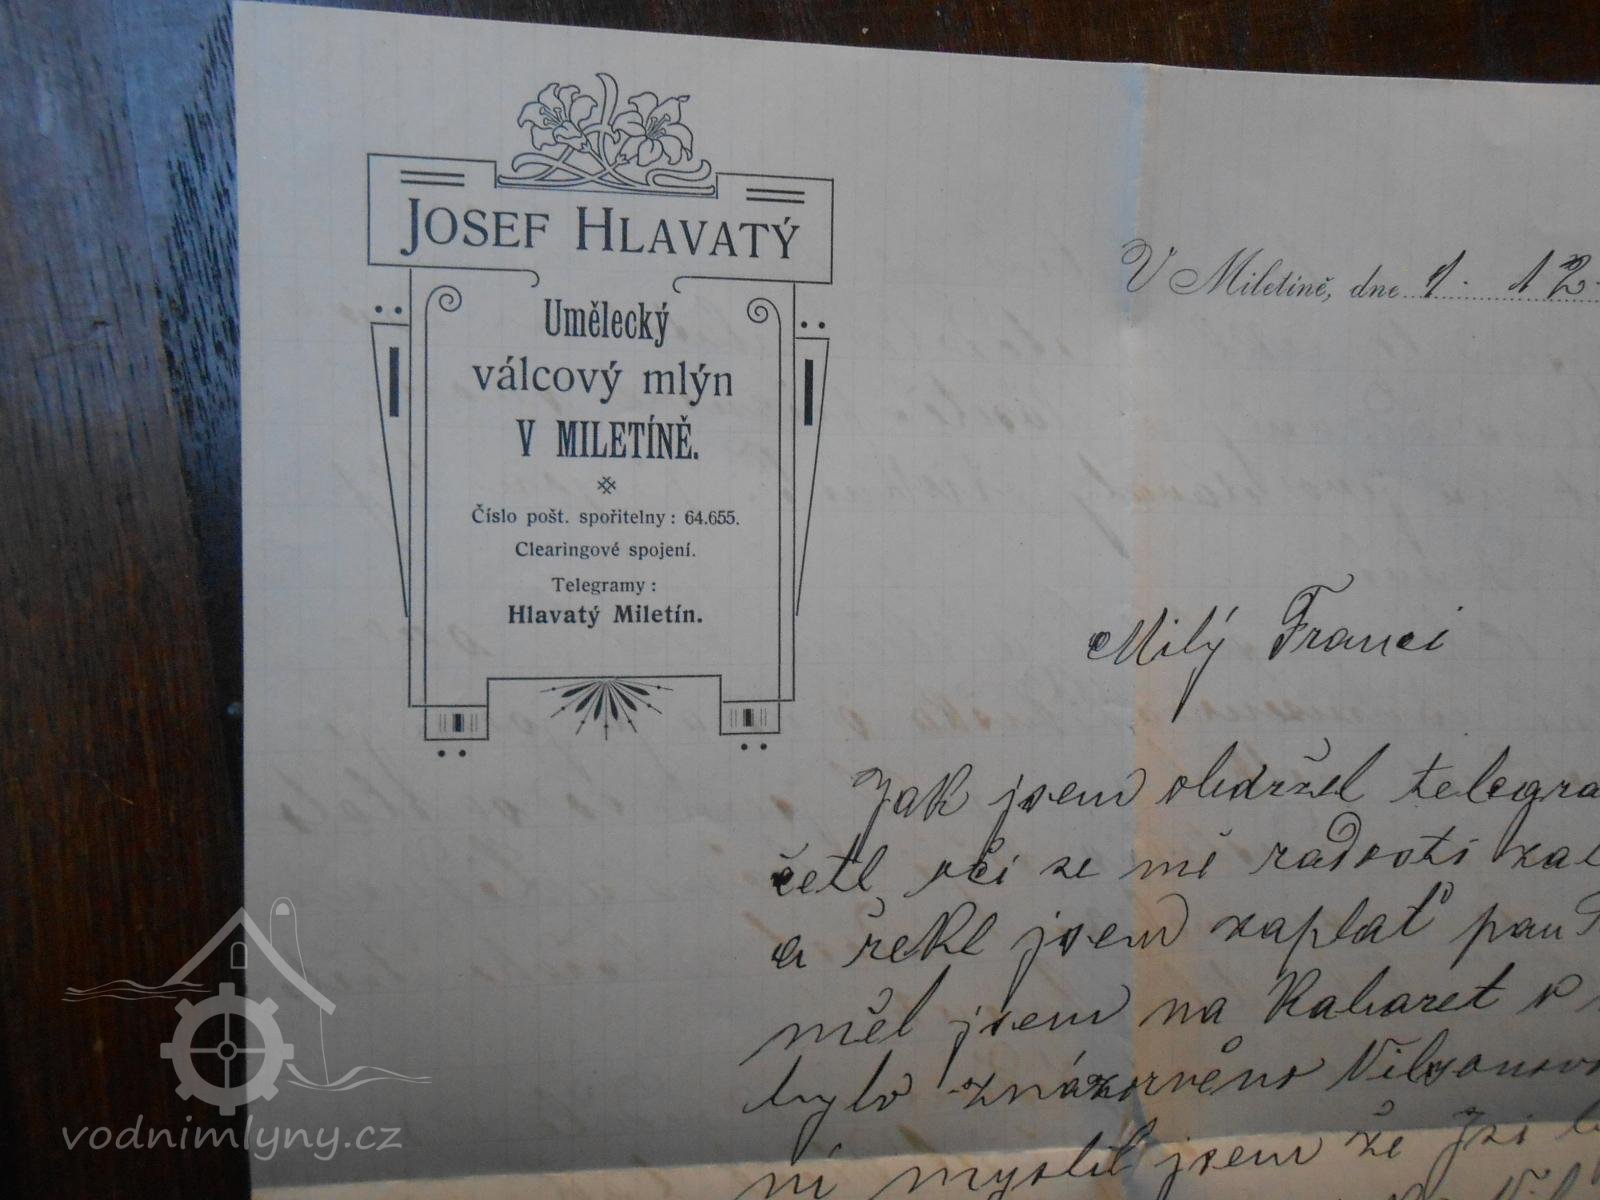 JOSEF HLAVATÝ
Umělecký
válcový mlýn
V MILETÍNĚ.
Číslo pošt. spořitelny: 64.655.
Clearingové spojení.
Telegramy:
Hlavatý Miletín.
V Miletíně, dne 1. 12.
Milý Franci
Jak jsem obdržel telegra
četl, oči se mi radostí zal
a řekl jsem zaplať pan
měl jsem na Kabaret v
bylo znázorněno Vilsonov
ní myslil jsem že Jsi
vodnimlyny.cz